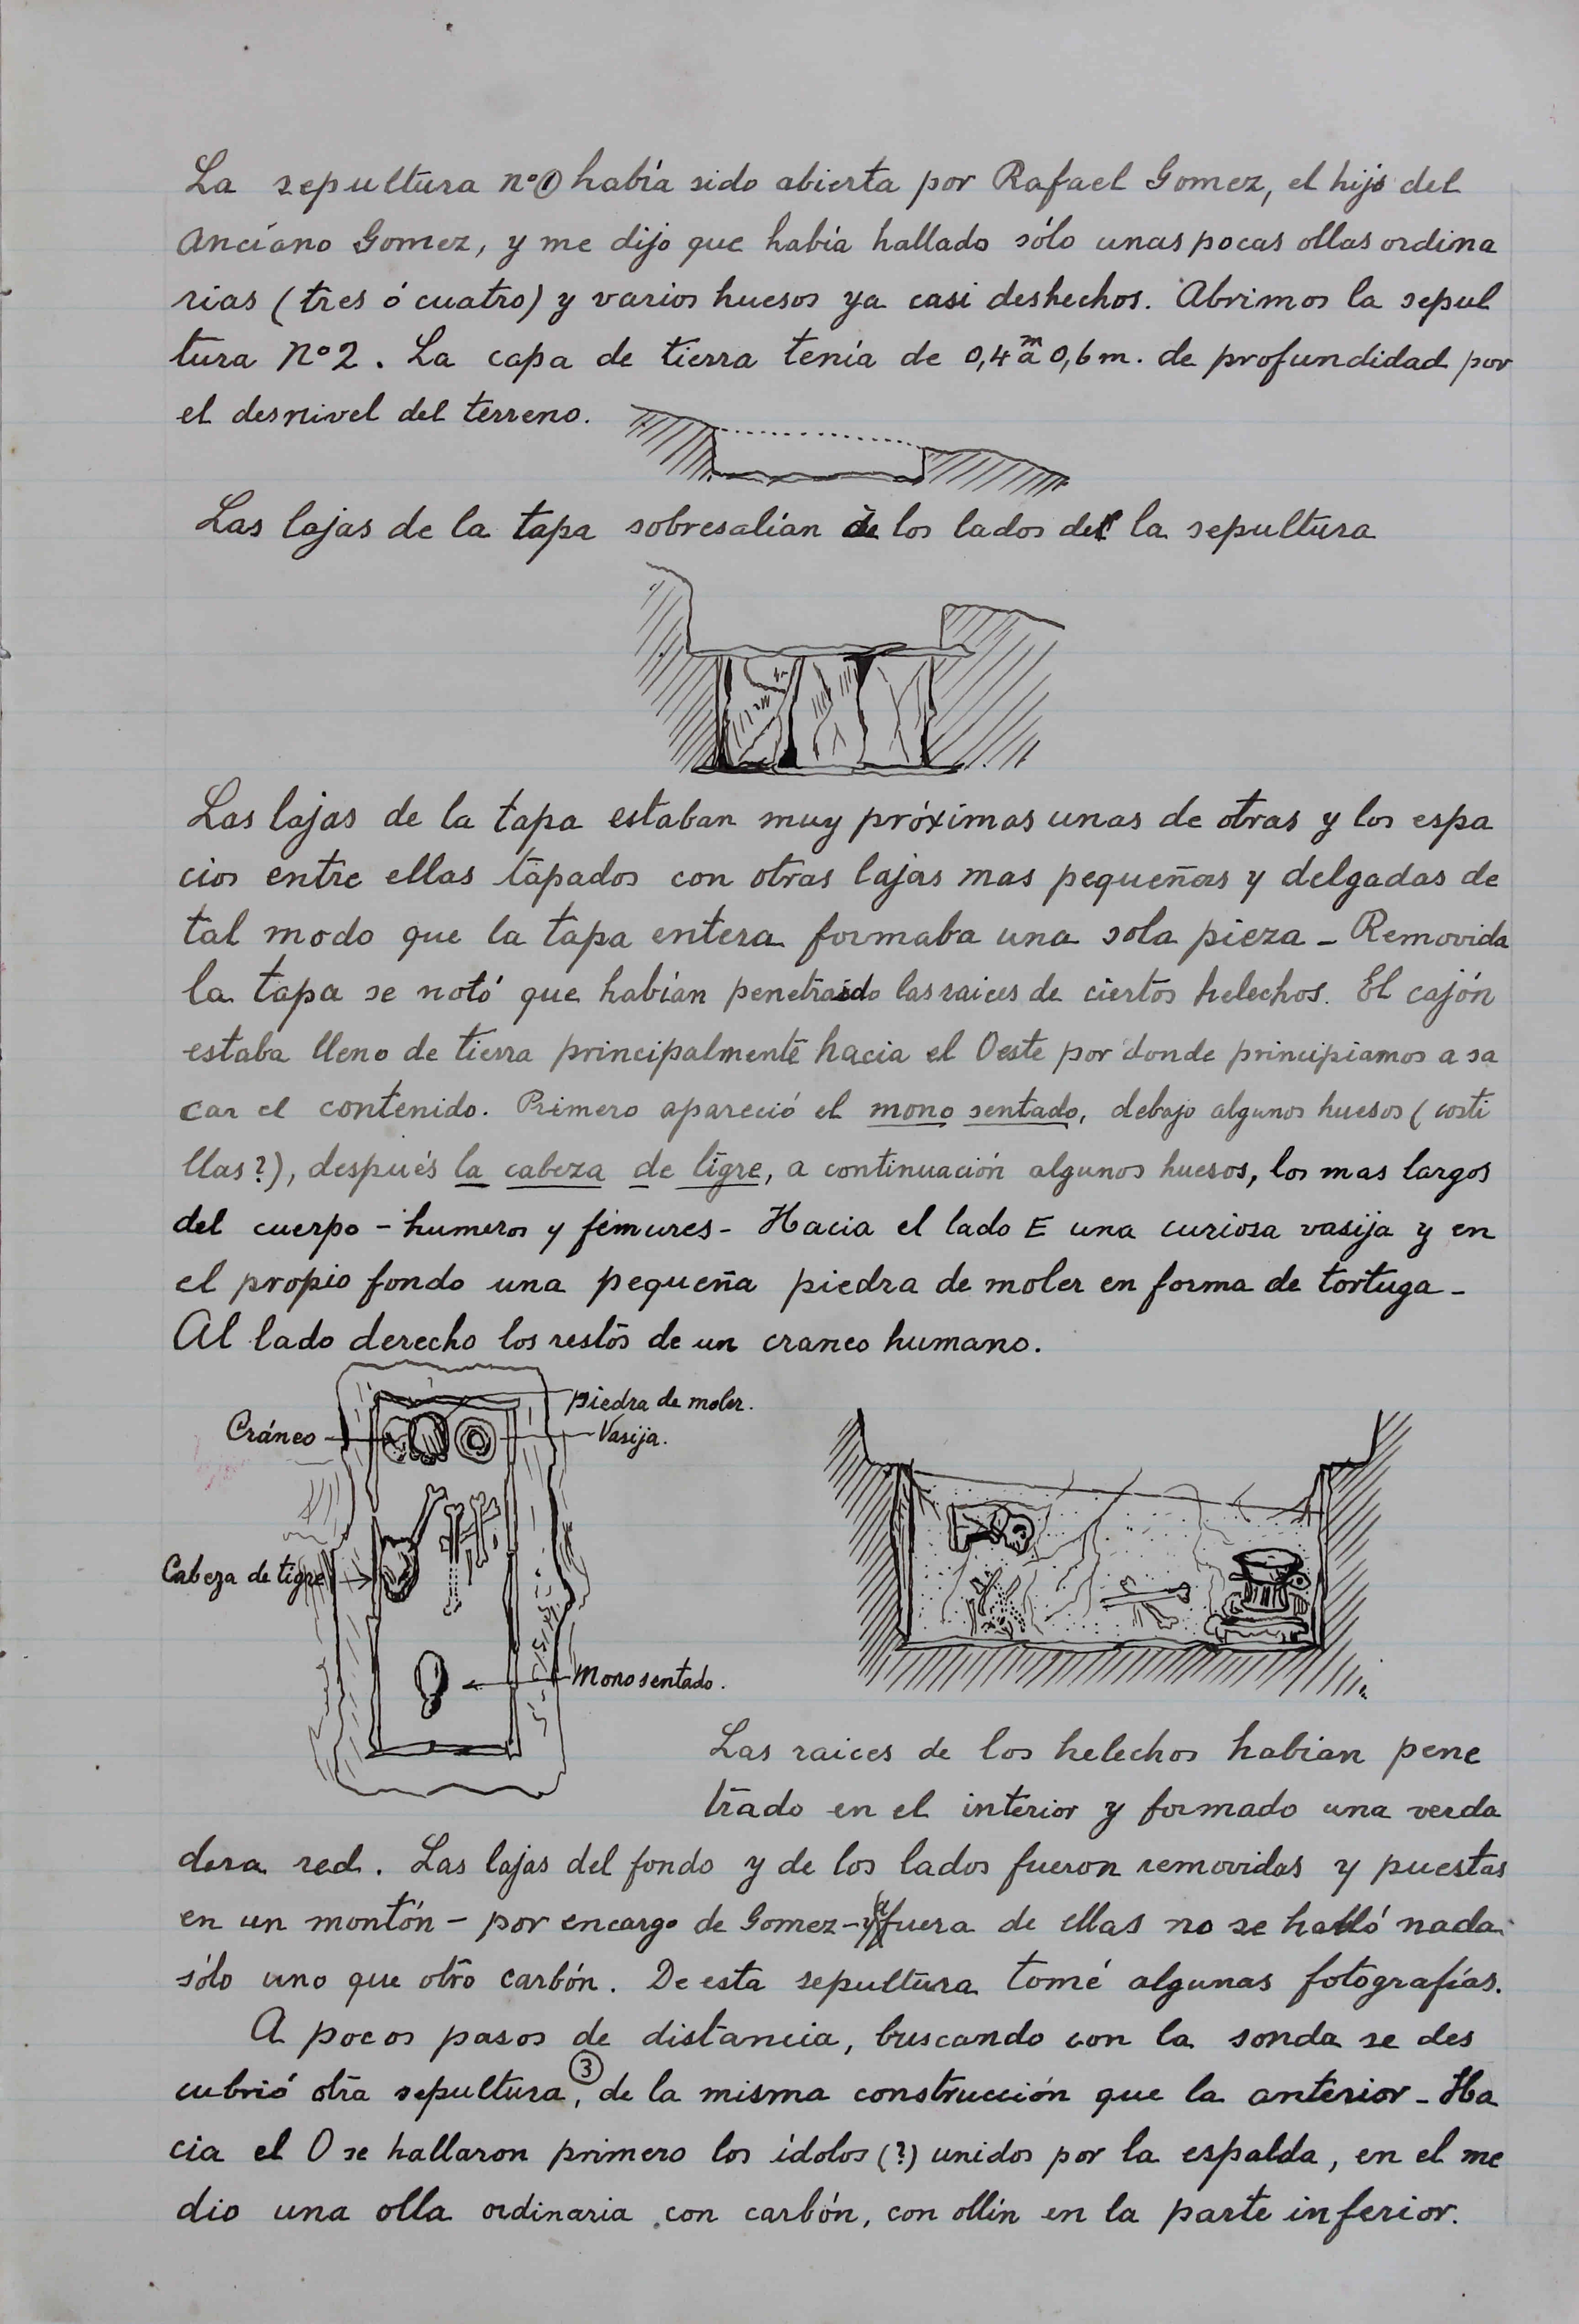 La sepultura nº① había sido abierta por Rafael Gomez, el hijo del
Anciano Gomez, y me dijo que había hallado sólo unas pocas ollas ordina
rias (tres ó cuatro) y varios huesos ya casi deshechos. Abrimos la sepul
tura Nº2. La capa de tierra tenía de 0,4 m a 0,6 m. de profundidad por
el desnivel del terreno.
Las lajas de la tapa sobresalían de los lados de la sepultura
Las lajas de la tapa estaban muy próximas unas de otras y los espa
cios entre ellas tapados con otras lajas mas pequeñas y delgadas de
tal modo que la tapa entera formaba una sola pieza - Removida
la tapa se notó que habían penetrado las raices de ciertos helechos. El cajón
estaba lleno de tierra principalmente hacia el Oeste por donde principiamos a sa
car el contenido. Primero apareció el mono sentado, debajo algunos huesos (costi
llas?), después la cabeza de tigre, a continuación algunos huesos, los mas largos
del cuerpo - humeros y fémures - Hacia el lado E una curiosa vasija y en
el propio fondo una pequeña piedra de moler en forma de tortuga -
Al lado derecho los restos de un craneo humano.
piedra de moler.
Cráneo
Vasija.
Cabeza de tigre
Mono sentado.
Las raices de los helechos habian pene
trado en el interior y formado una verda
dera red. Las lajas del fondo y de los lados fueron removidas y puestas
en un montón - por encargo de Gomez - fuera de ellas no se halló nada
sólo uno que otro carbón. De esta sepultura tomé algunas fotografías.
A pocos pasos de distancia, buscando con la sonda se des
cubrió otra sepultura ③, de la misma construcción que la anterior - Ha
cia el O se hallaron primero los ídolos (?) unidos por la espalda, en el me
dio una olla ordinaria con carbón, con ollín en la parte inferior.